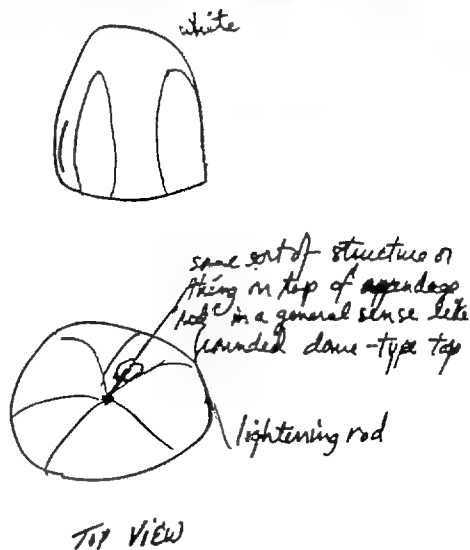 white
some sort of structure or
thing on top of appendage
in a general sense like
rounded dome-type top
lightening rod
TOP VIEW